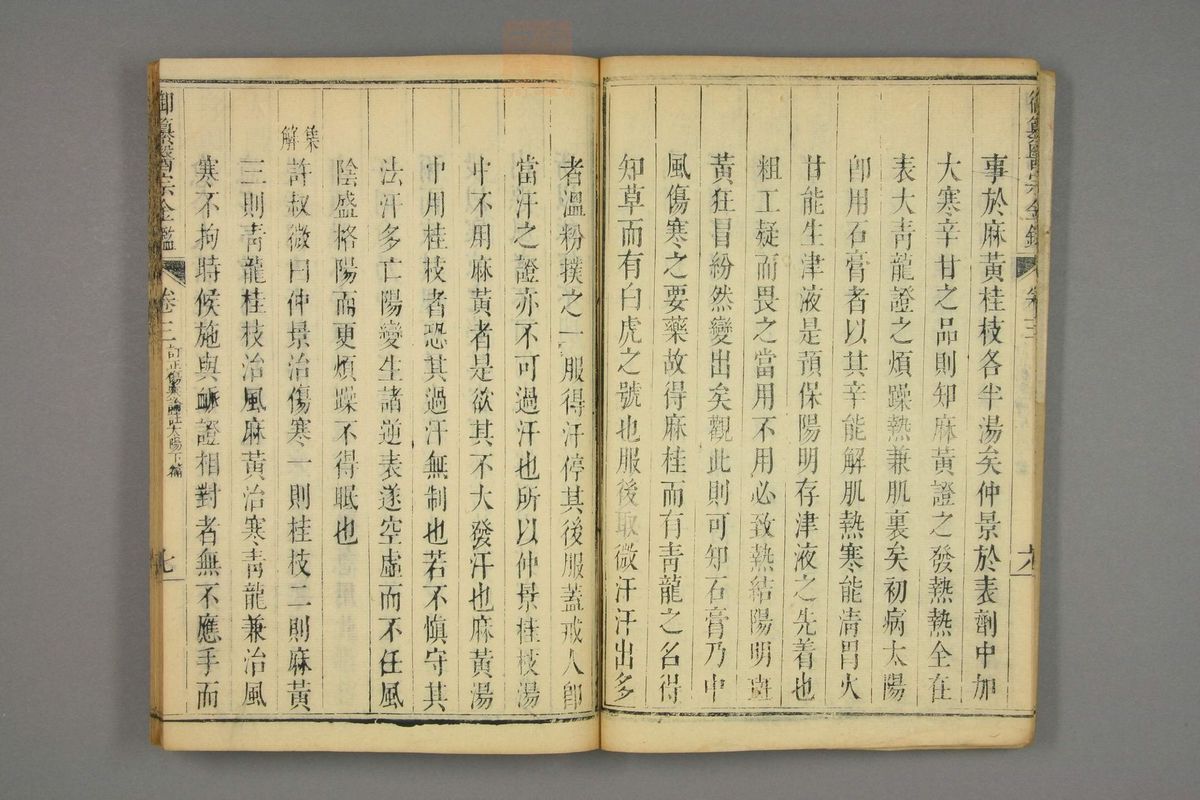 事於麻黃桂枝各半湯矣仲景於表劑中加
大寒辛甘之品則知麻黃證之發熱熱全在
表大青龍證之煩躁熱兼肌裏矣初病太陽
卽用石膏者以其辛能解肌熱寒能淸胃火
甘能生津液是預保陽明存津液之先着也
粗工疑而畏之當用不用必致熱結陽明斑
黃狂冒紛然變出矣觀此則可知石膏乃中
風傷寒之要藥故得麻桂而有靑龍之名得
知草而有白虎之號也服後取微汗汗出多
者溫粉撲之一服得汗停其後服蓋戒人卽
當汗之證亦不可過汗也所以仲景桂枝湯
中不用麻黃者是欲其不大發汗也麻黃湯
中用桂枝者恐其過汗無制也若不愼守其
法汗多亡陽變生諸逆表遂空虛而不任風
陰盛格陽而更煩躁不得眠也
集解
許叔微曰仲景治傷寒一則桂枝二則麻黃
三則靑龍桂枝治風麻黃治寒靑龍兼治風
寒不拘時候施與脈證相對者無不應手而
御纂醫宗金鑑
卷三
訂正傷寒論註太陽下篇
七